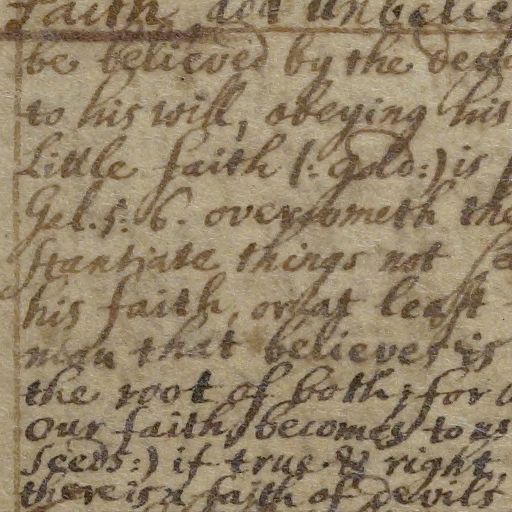 faith and unbelie
be believed by the de
to his will, obeying his
Little faith (: gold:) is
Gel. 5: 6. overcometh the
stantiate things not se
his faith, or at least
man that believes is
the root of both; for
our faith becomes to us
seeds:) if true & right
there is a faith of devils